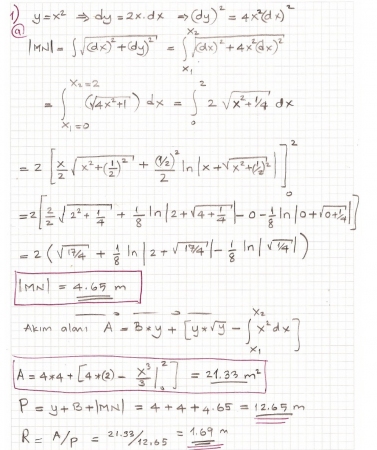 1) y = x² ⇒ dy = 2x.dx ⇒ (dy)² = 4x²(dx)²
a) |MN| = ∫√(dx)²+(dy)² = ∫_{x₁}^{x₂} √(dx)²+4x²(dx)²
= ∫_{x₁=0}^{x₂=2} (√4x²+1) dx = ∫_{0}^{2} 2 √x²+1/4 dx
= 2 [x/2 √x²+(1/2)² + (1/2)²/2 ln|x+√x²+(1/2)²|]_{0}^{2}
= 2[2/2 √2²+1/4 + 1/8 ln|2+√4+1/4| - 0 - 1/8 ln|0+√0+1/4|]
= 2 (√17/4 + 1/8 ln|2+√17/4| - 1/8 ln|√1/4|)
|MN| = 4.65 m
Akım alanı A = B*y + [y*√y - ∫_{x₁}^{x₂} x² dx]
A = 4*4 + [4*(2) - x³/3 |_{0}^{2}] = 21.33 m²
P = y + B + |MN| = 4 + 4 + 4.65 = 12.65 m
R = A/P = 21.33/12.65 = 1.69 m